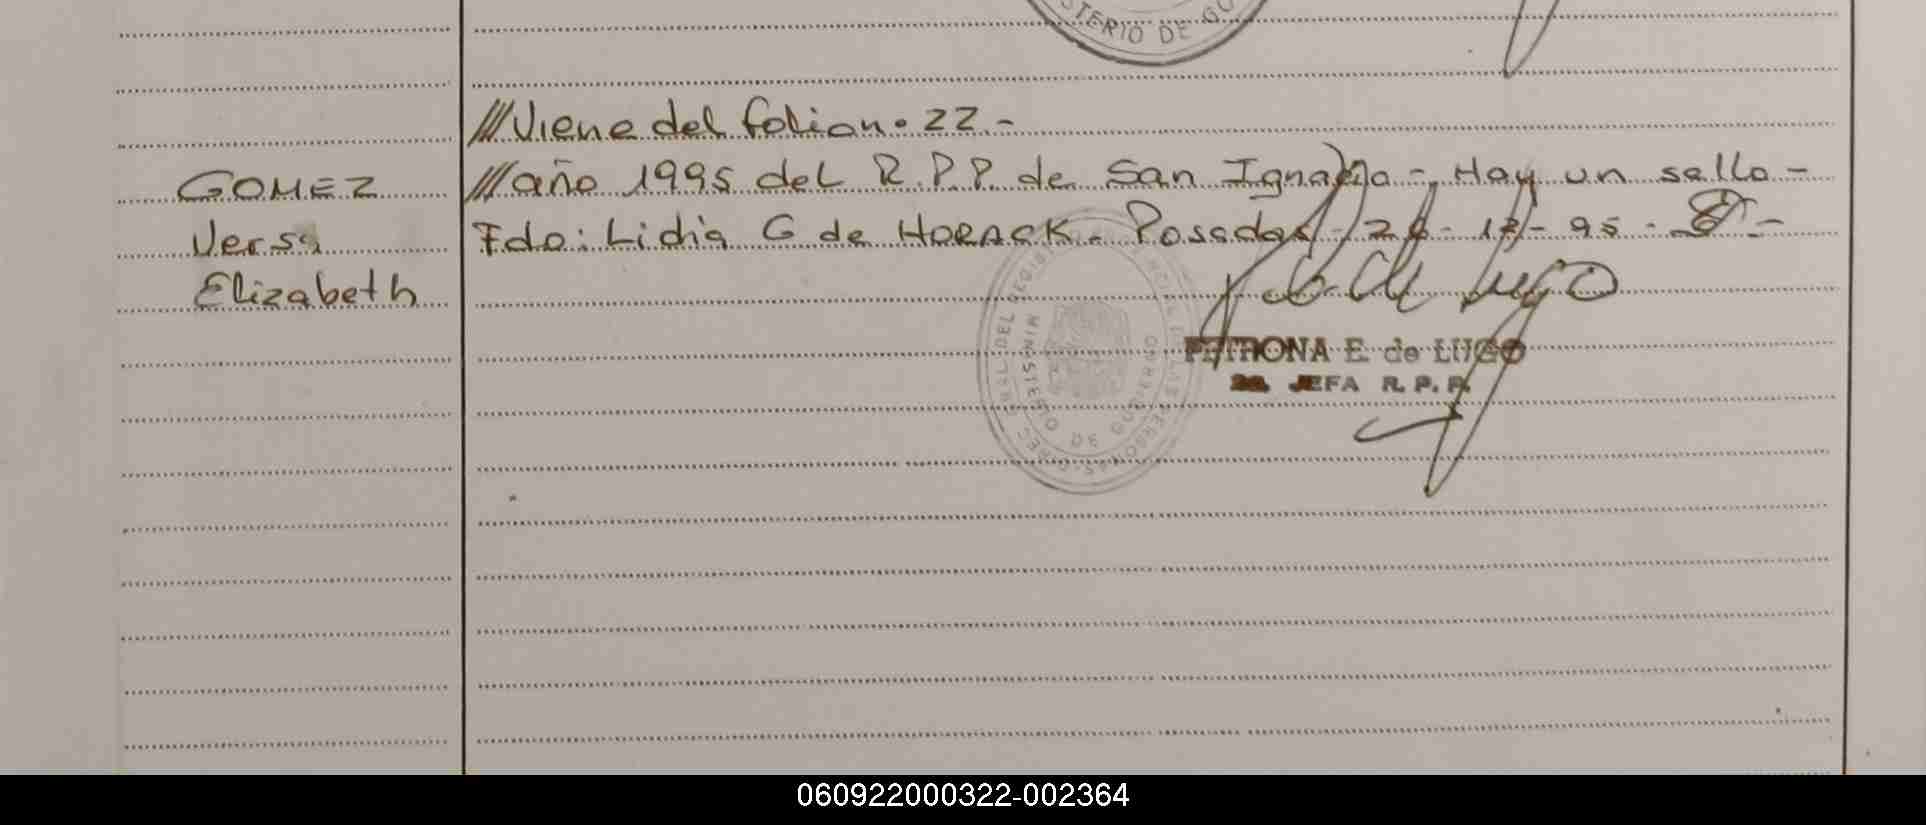 STERIO DE GO
///Viene del folio n. 22.-
GOMEZ ///año 1995 del R.P.P. de San Ignacio -. Hay un sello -
Versa Fdo: Lidia G de HORACK. Posadas - 26 - 12 - 95 -
Elizabeth
PETRONA E. de LUGO
2a. JEFA R. P. P.
MINISTERIO DE GOBIERNO
060922000322-002364